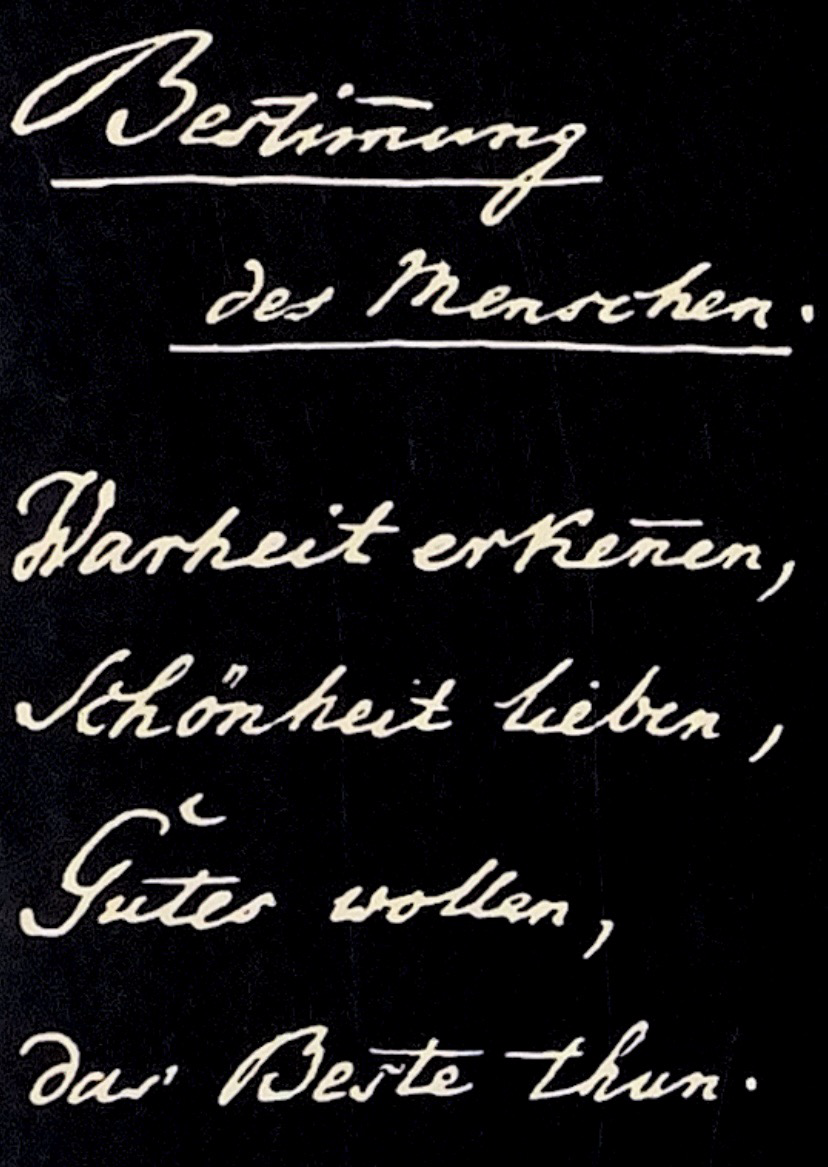 Bestim̅ung
des Menschen.
Warheit erken̅en,
Schönheit lieben,
Gutes wollen,
das Beste thun.